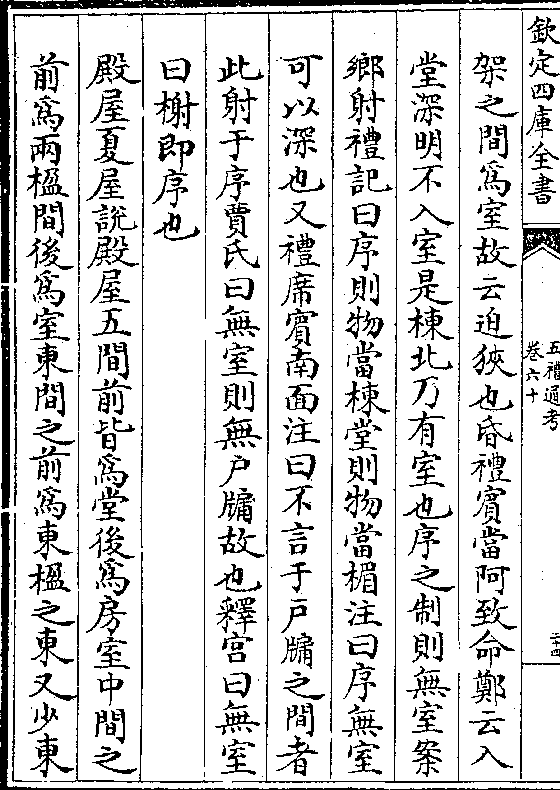 欽定四庫全書
五禮通考
卷六十
二十四
架之間爲室故云迫狹也昏禮賓當阿致命鄭云入
堂深明不入室是棟北乃有室也序之制則無室案
鄉射禮記曰序則物當棟堂則物當楣注曰序無室
可以深也又禮席賓南面注曰不言于戶牖之間者
此射于序賈氏曰無室則無户牖故也釋宫曰無室
曰榭即序也
殿屋夏屋說殿屋五間前皆爲堂後爲房室中間之
前爲兩楹間後爲室東間之前爲東楹之東又少東